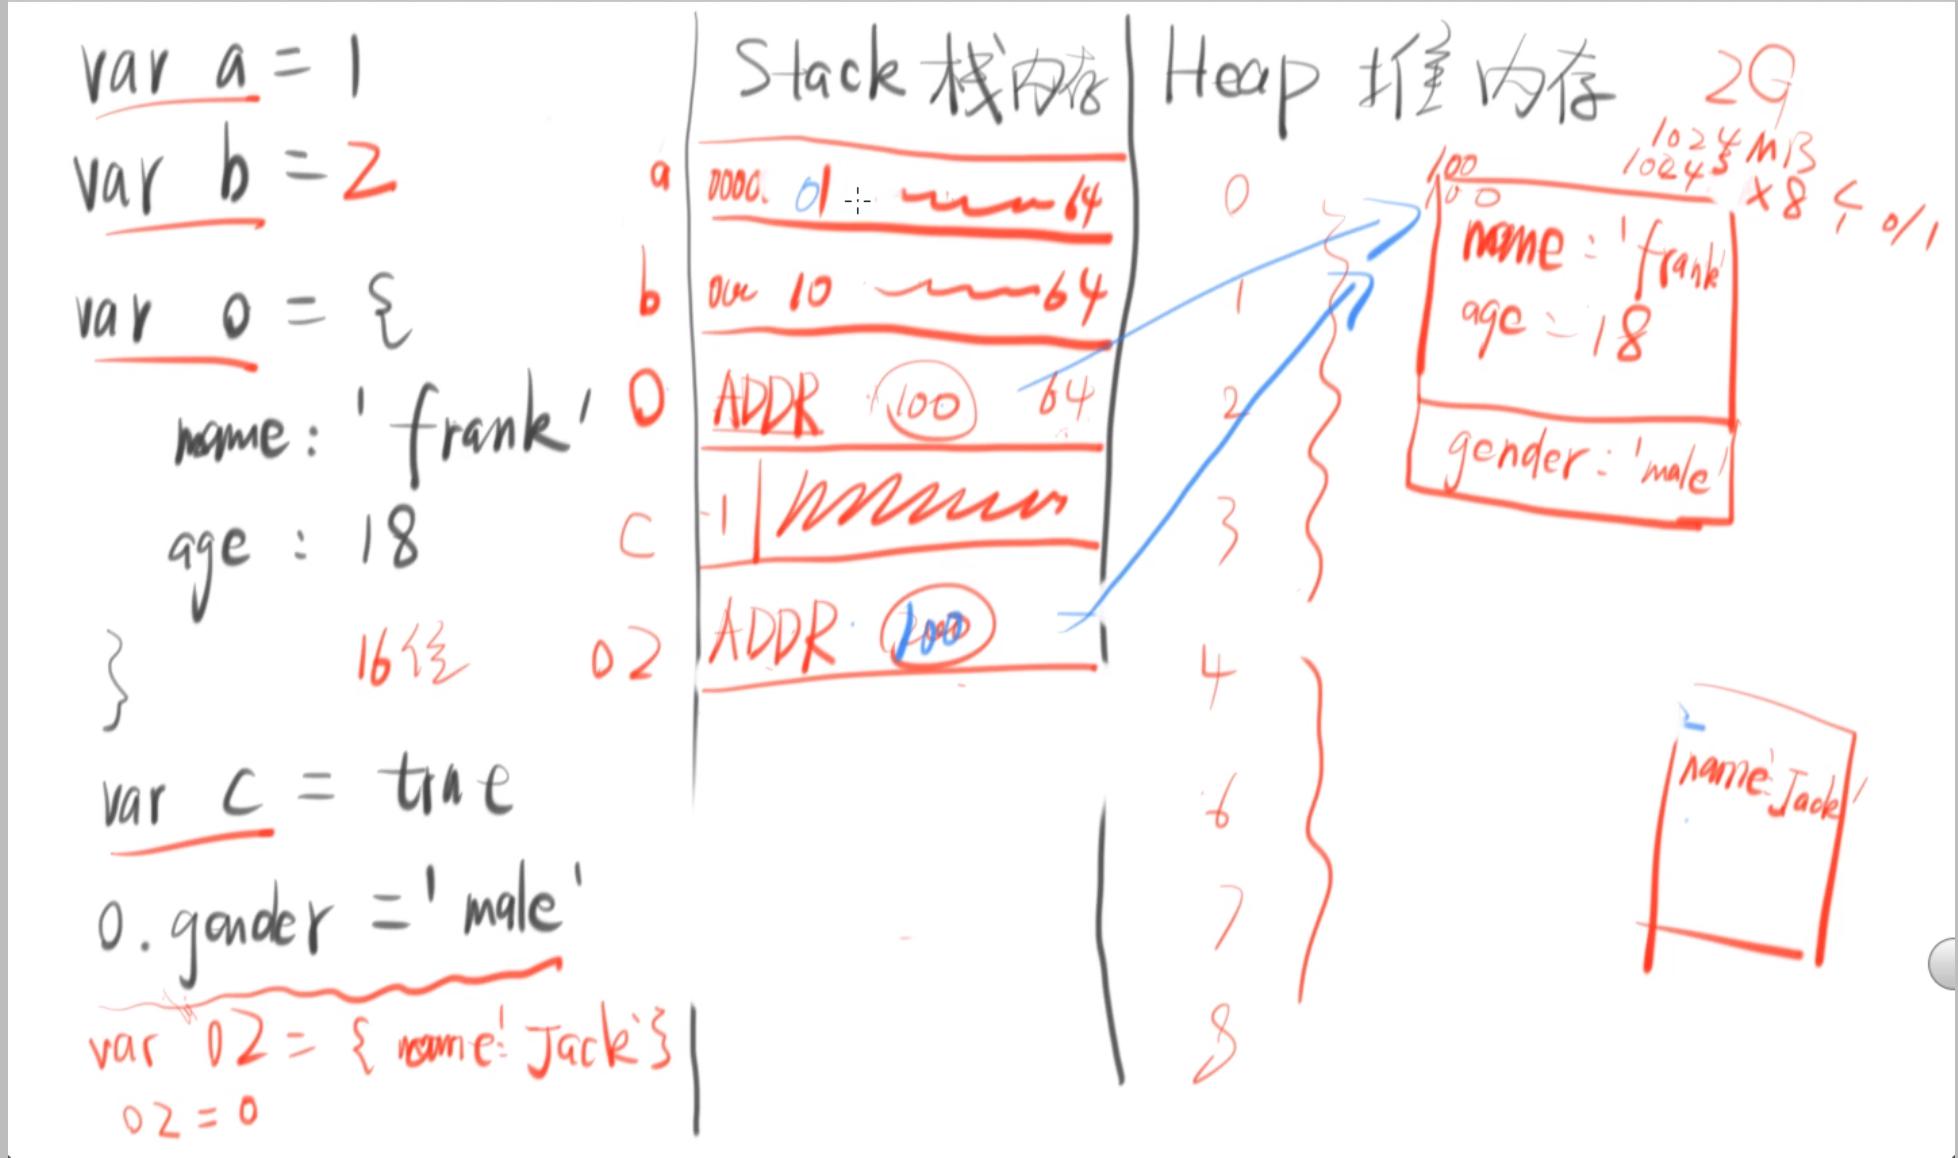 var a = 1
var b = 2
var o = {
name: 'frank'
age : 18
}
16位
var c = true
o.gender = 'male'
var o2 = { name: 'Jack' }
o2 = o
Stack 栈内存
a 0000. 01 64
b 10 64
O ADDR 100 64
C 1
O2 ADDR 100
Heap 堆内存
2G
1024 MB
1024
x8 个 0/1
0
1
2
3
4
6
7
8
100
name: 'frank'
age: 18
gender: 'male'
name: 'Jack'